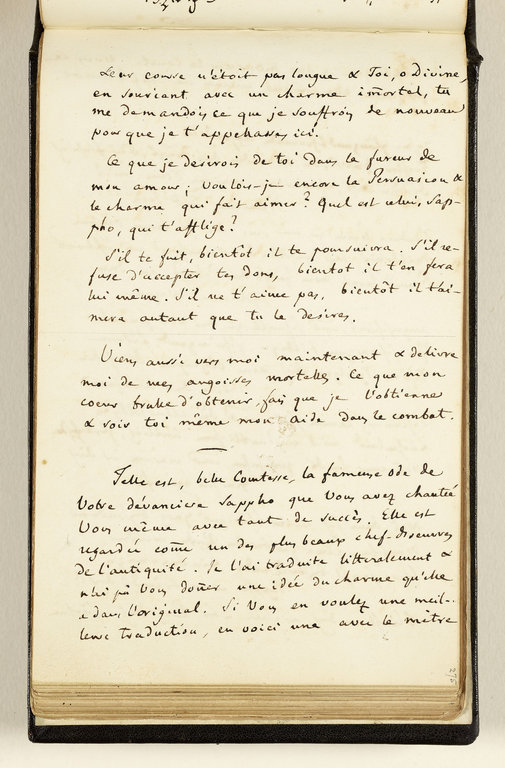 Leur course n'étoit pas longue & Toi, o Divine,
en souriant avec un charme im̄ortel, tu
me demandois ce que je souffrois de nouveau
pour que je t'appellasses ici.
Ce que je desirois de toi dans la fureur de
mon amour; voulois-je encore la Persuasion &
le charme qui fait aimer? Quel est celui, Sap-
pho, qui t'afflige?
S'il te fuit, bientot il te poursuivra. S'il re-
fuse d'accepter tes dons, bientot il t'en fera
lui même. S'il ne t'aime pas, bientôt il t'ai-
mera autant que tu le desires.
Viens aussi vers moi maintenant & delivre
moi de mes angoisses mortelles. Ce que mon
coeur brule d'obtenir, fais que je l'obtienne
& sois toi même mon aide dans le combat.
Telle est, belle Comtesse, la fameuse Ode de
Votre dévanciere Sappho que Vous avez chantée
Vous même avec tant de succès. Elle est
regardée com̄e un des plus beaux chef-d'oeuvres
de l'antiquité. Je l'ai traduite litteralement &
n'ai pû Vous don̄er une idée du charme qu'elle
a dans l'original. Si Vous en voulez une meil-
leure traduction, en voici une avec le mètre